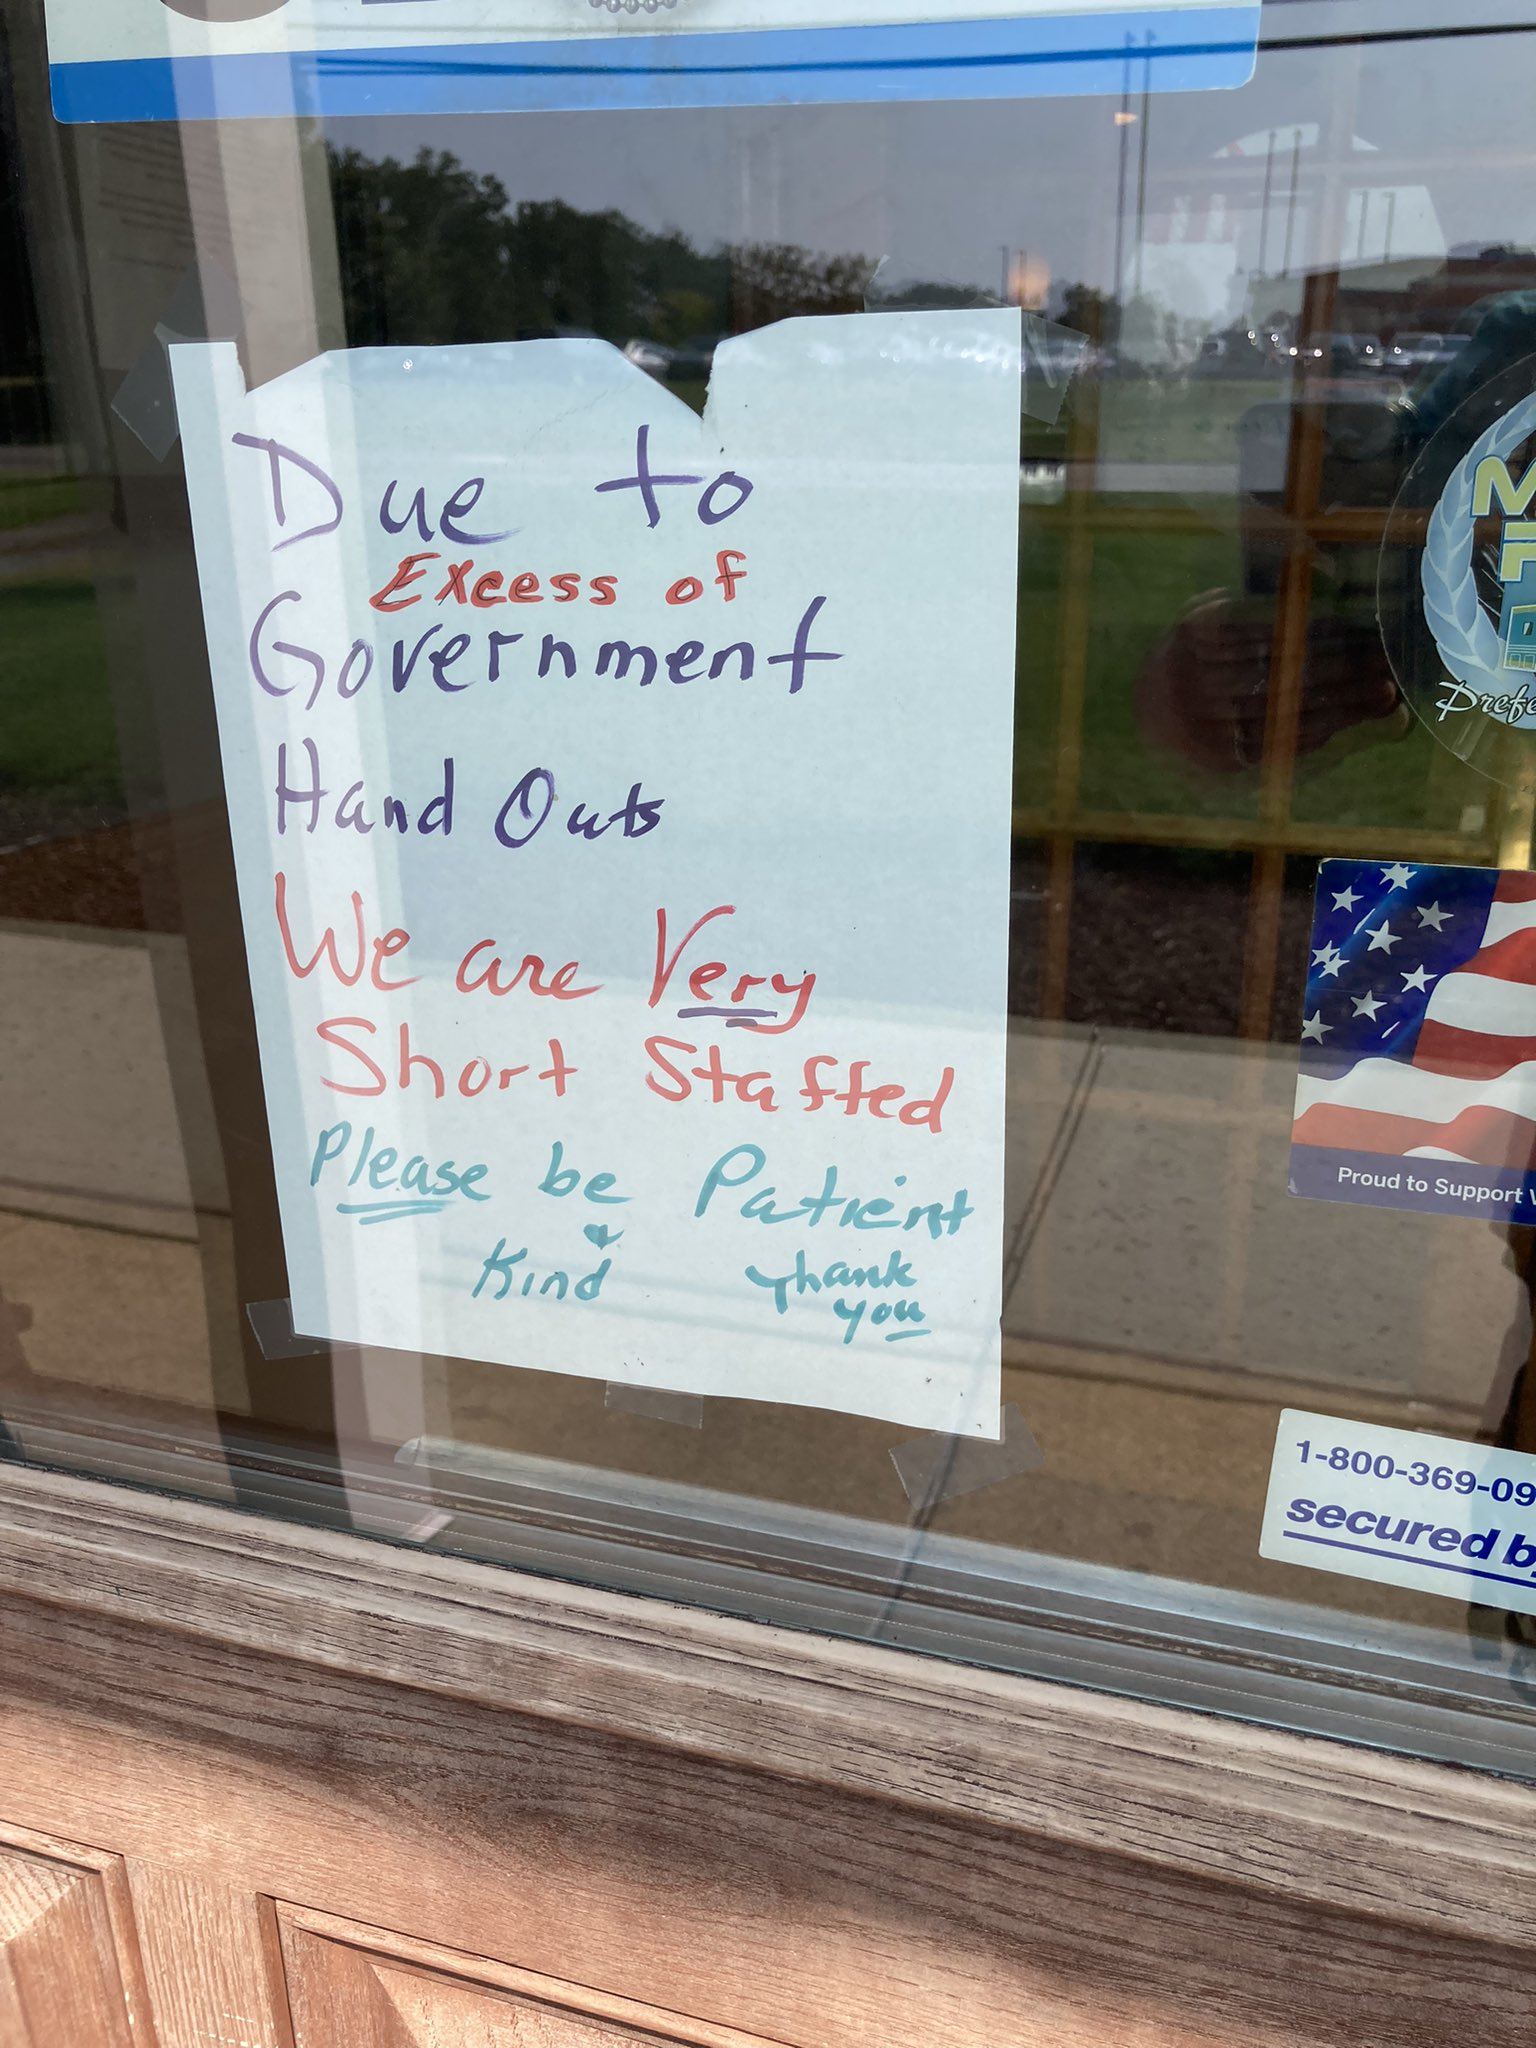 Due to
Excess of
Government
Hand Outs
We are Very
Short Staffed
Please be Patient
&
Kind
Thank
you
Proud to Support
1-800-369-09
secured